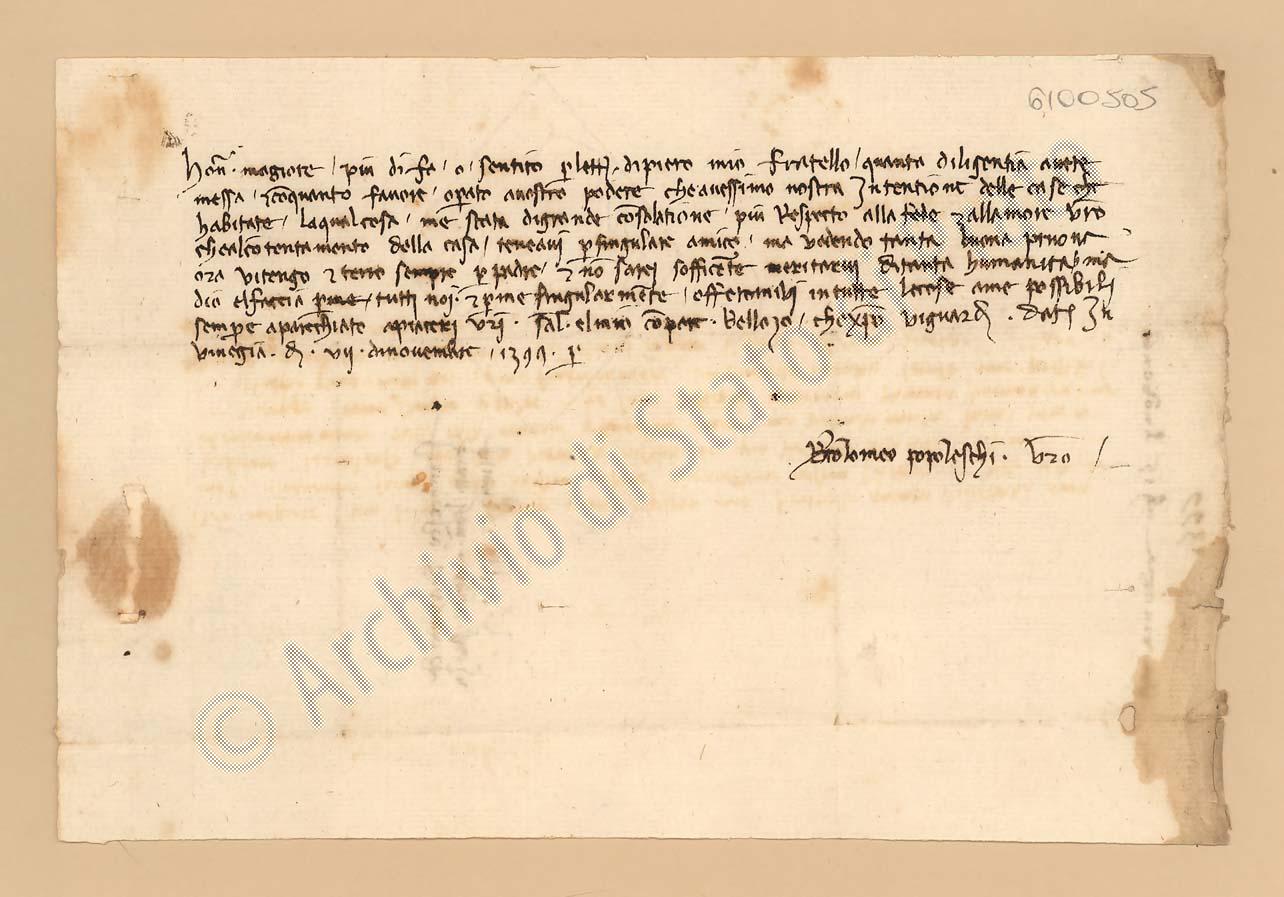 6100505
Hon. magiore / più di fa / o / sentito p lett. di piero mio fratello / quanta diligentia avete
messa / con quanto favore / opato a vostro podere che avessimo nostra Intentione delle case che
habitate / La qual cosa / me stata di grande consolatione / più Respecto alla fede & all amore vro
che al contentamento della casa / teneavi p singulare amico / ma vedendo tanta buona pruova
ora vi tengo & terrò sempre p padre / & non sarei sofficente meritarvi di tanta humanita / ma
dio el faccia p me / tutti noi & p me singularmente / offeromivi in tutte le cose a me possibili
sempre aparechiato a piaceri vri . Sal. el mio conpare . Bellozo / che xpo vi guardi . Dat. In
vinegia . di . vii . di novembre / 1399 . p
Bartolomeo popoleschi . vro /
© Archivio di Stato di